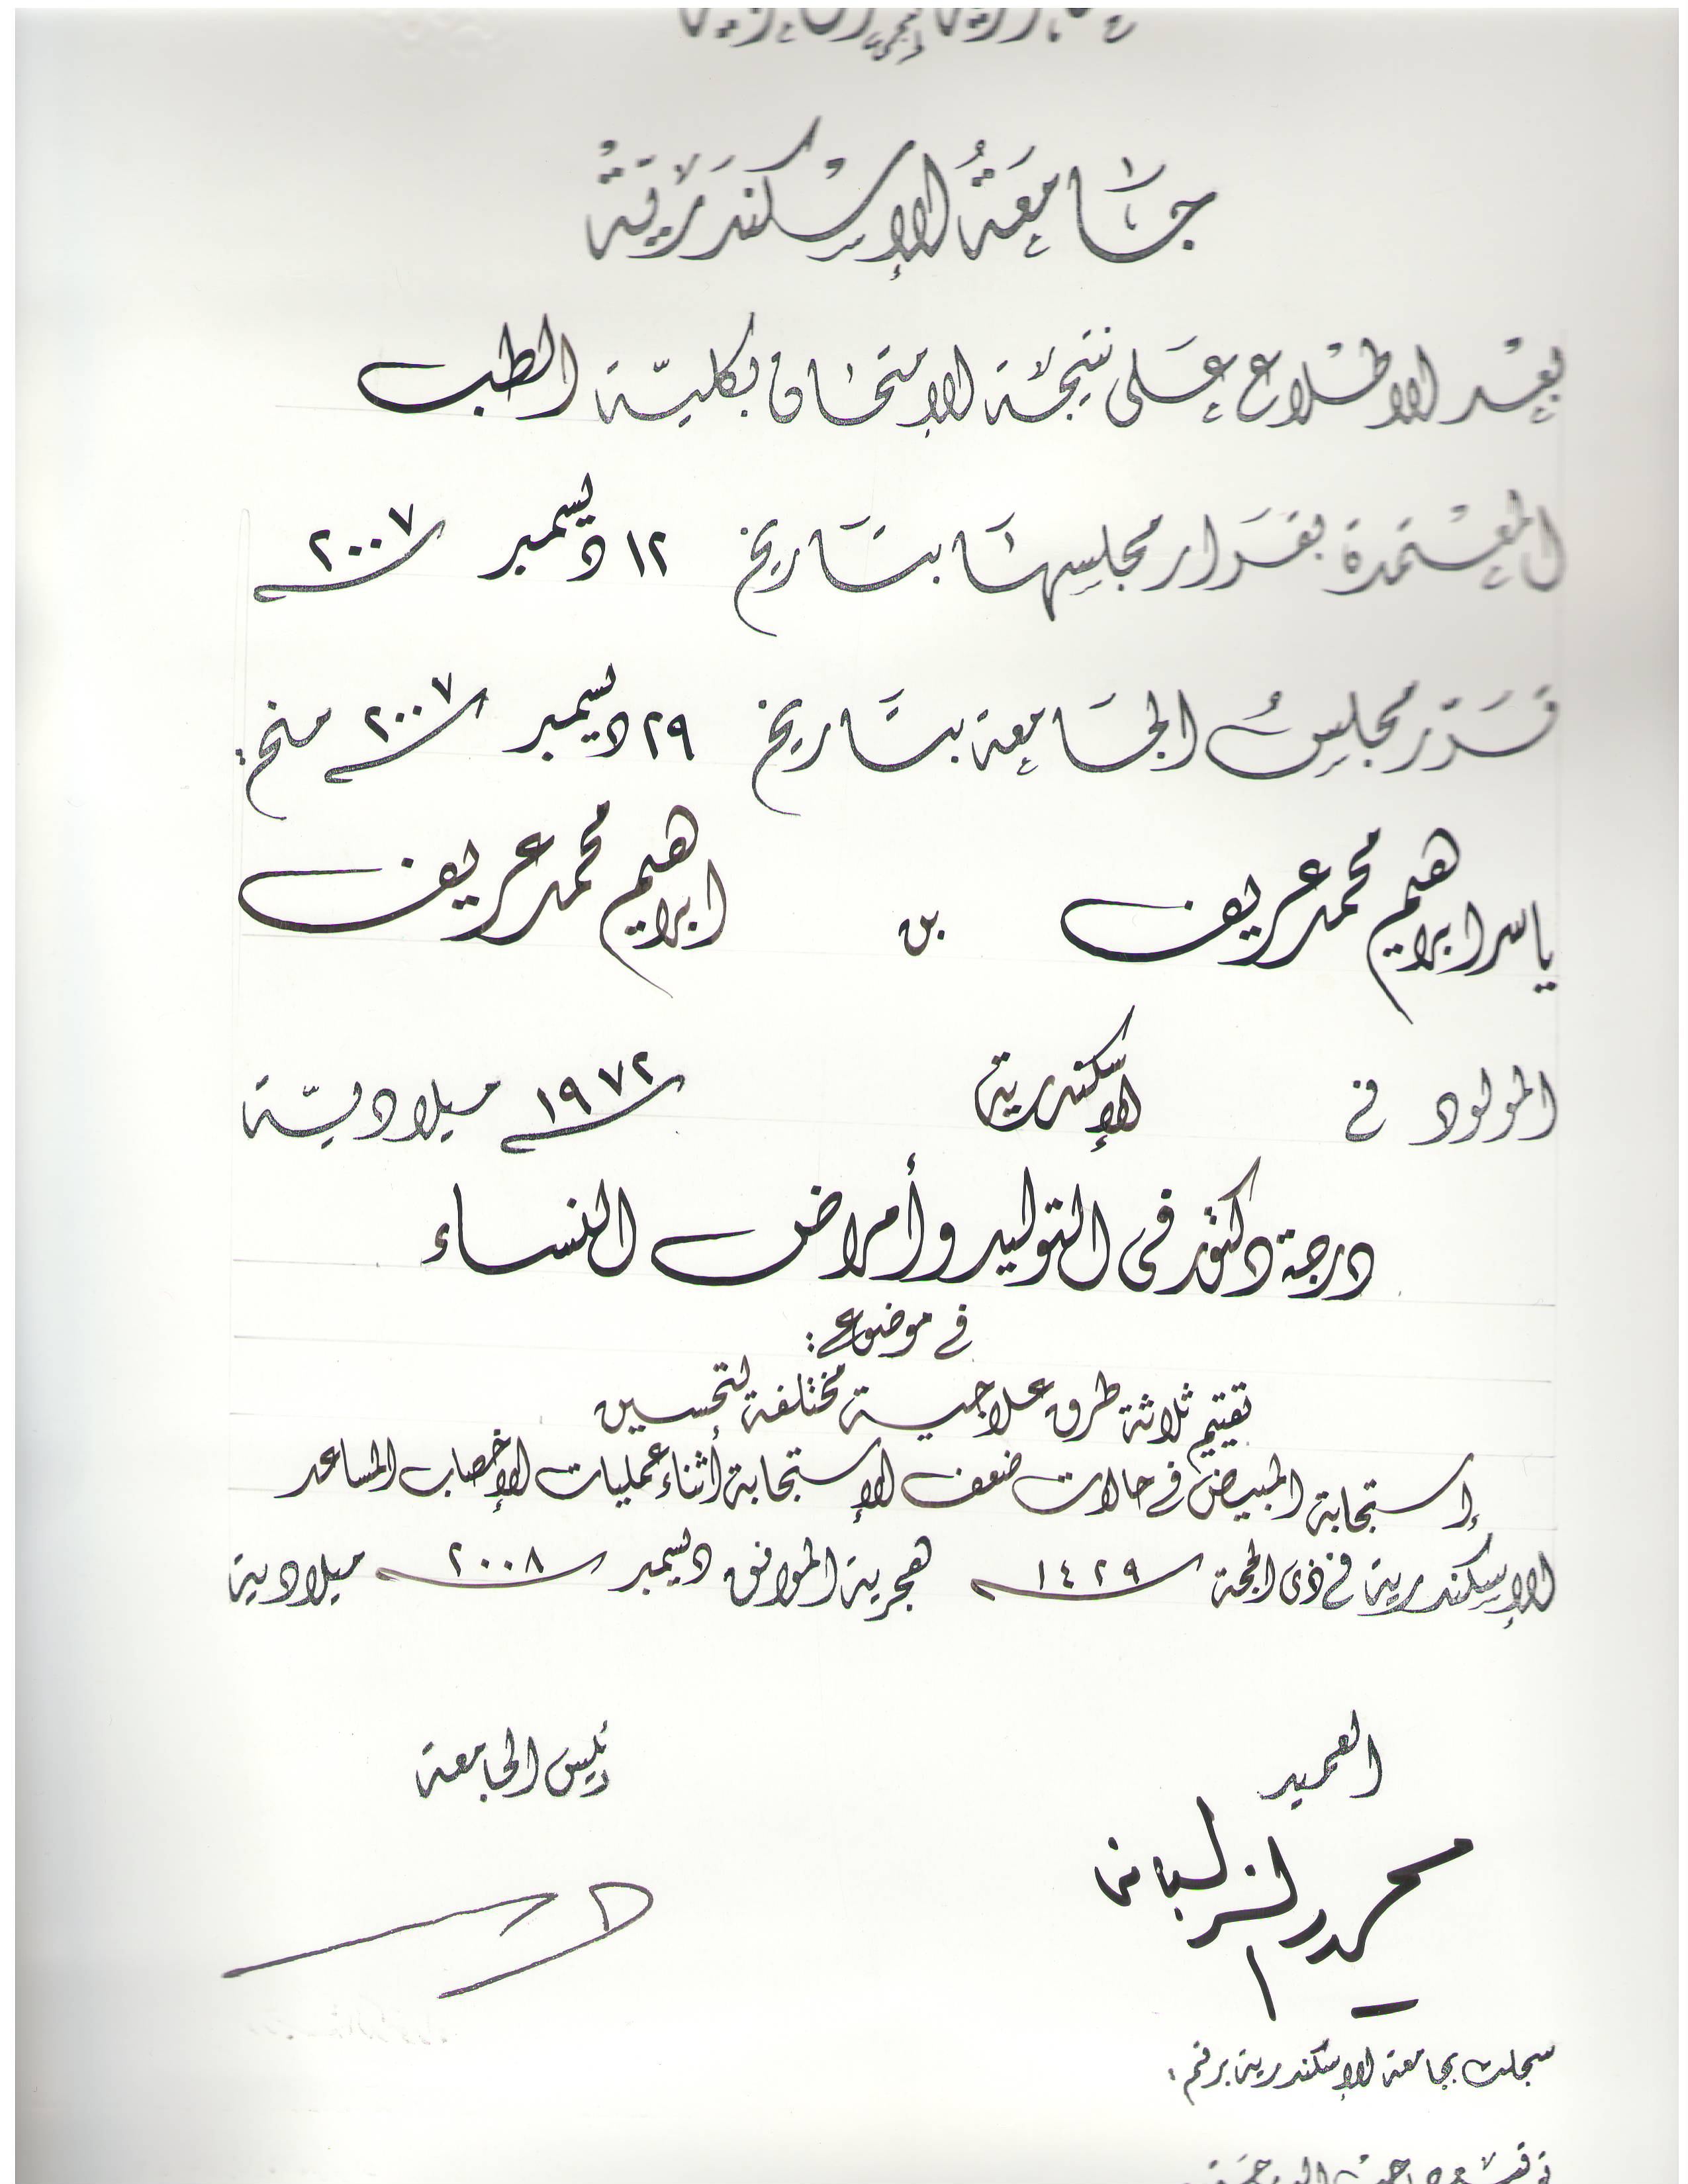 جَامعَةُ الإسْكندَريَّةْ
بعْد الاطلاع عَلى نتيجَة الامتحَان بكليّة الطب
المعْتمدة بقرَار مجلسهَا بتَاريخ ١٢ ديسمبر ٢٠٠٧
قرّر مجلسُ الجَامعة بتَاريخ ٢٩ ديسمبر ٢٠٠٧ منح :
ياسر ابراهيم محمد عريف بن ابراهيم محمد عريف
المولود في الإسكندرية ١٩٧٢ ميلاديّة
درجة دكتور فى التوليد وأمراض النساء
في موضوع :
تقييم ثلاثة طرق علاجية مختلفة لتحسين
إستجابة المبيض في حالات ضعف الإستجابة أثناء عمليات الإخصاب المساعد
الإسكندرية في ذى الحجة ١٤٢٩ هجرية الموافق ديسمبر ٢٠٠٨ ميلادية
العميد رئيس الجامعة
سجلت بجامعة الإسكندرية برقم :